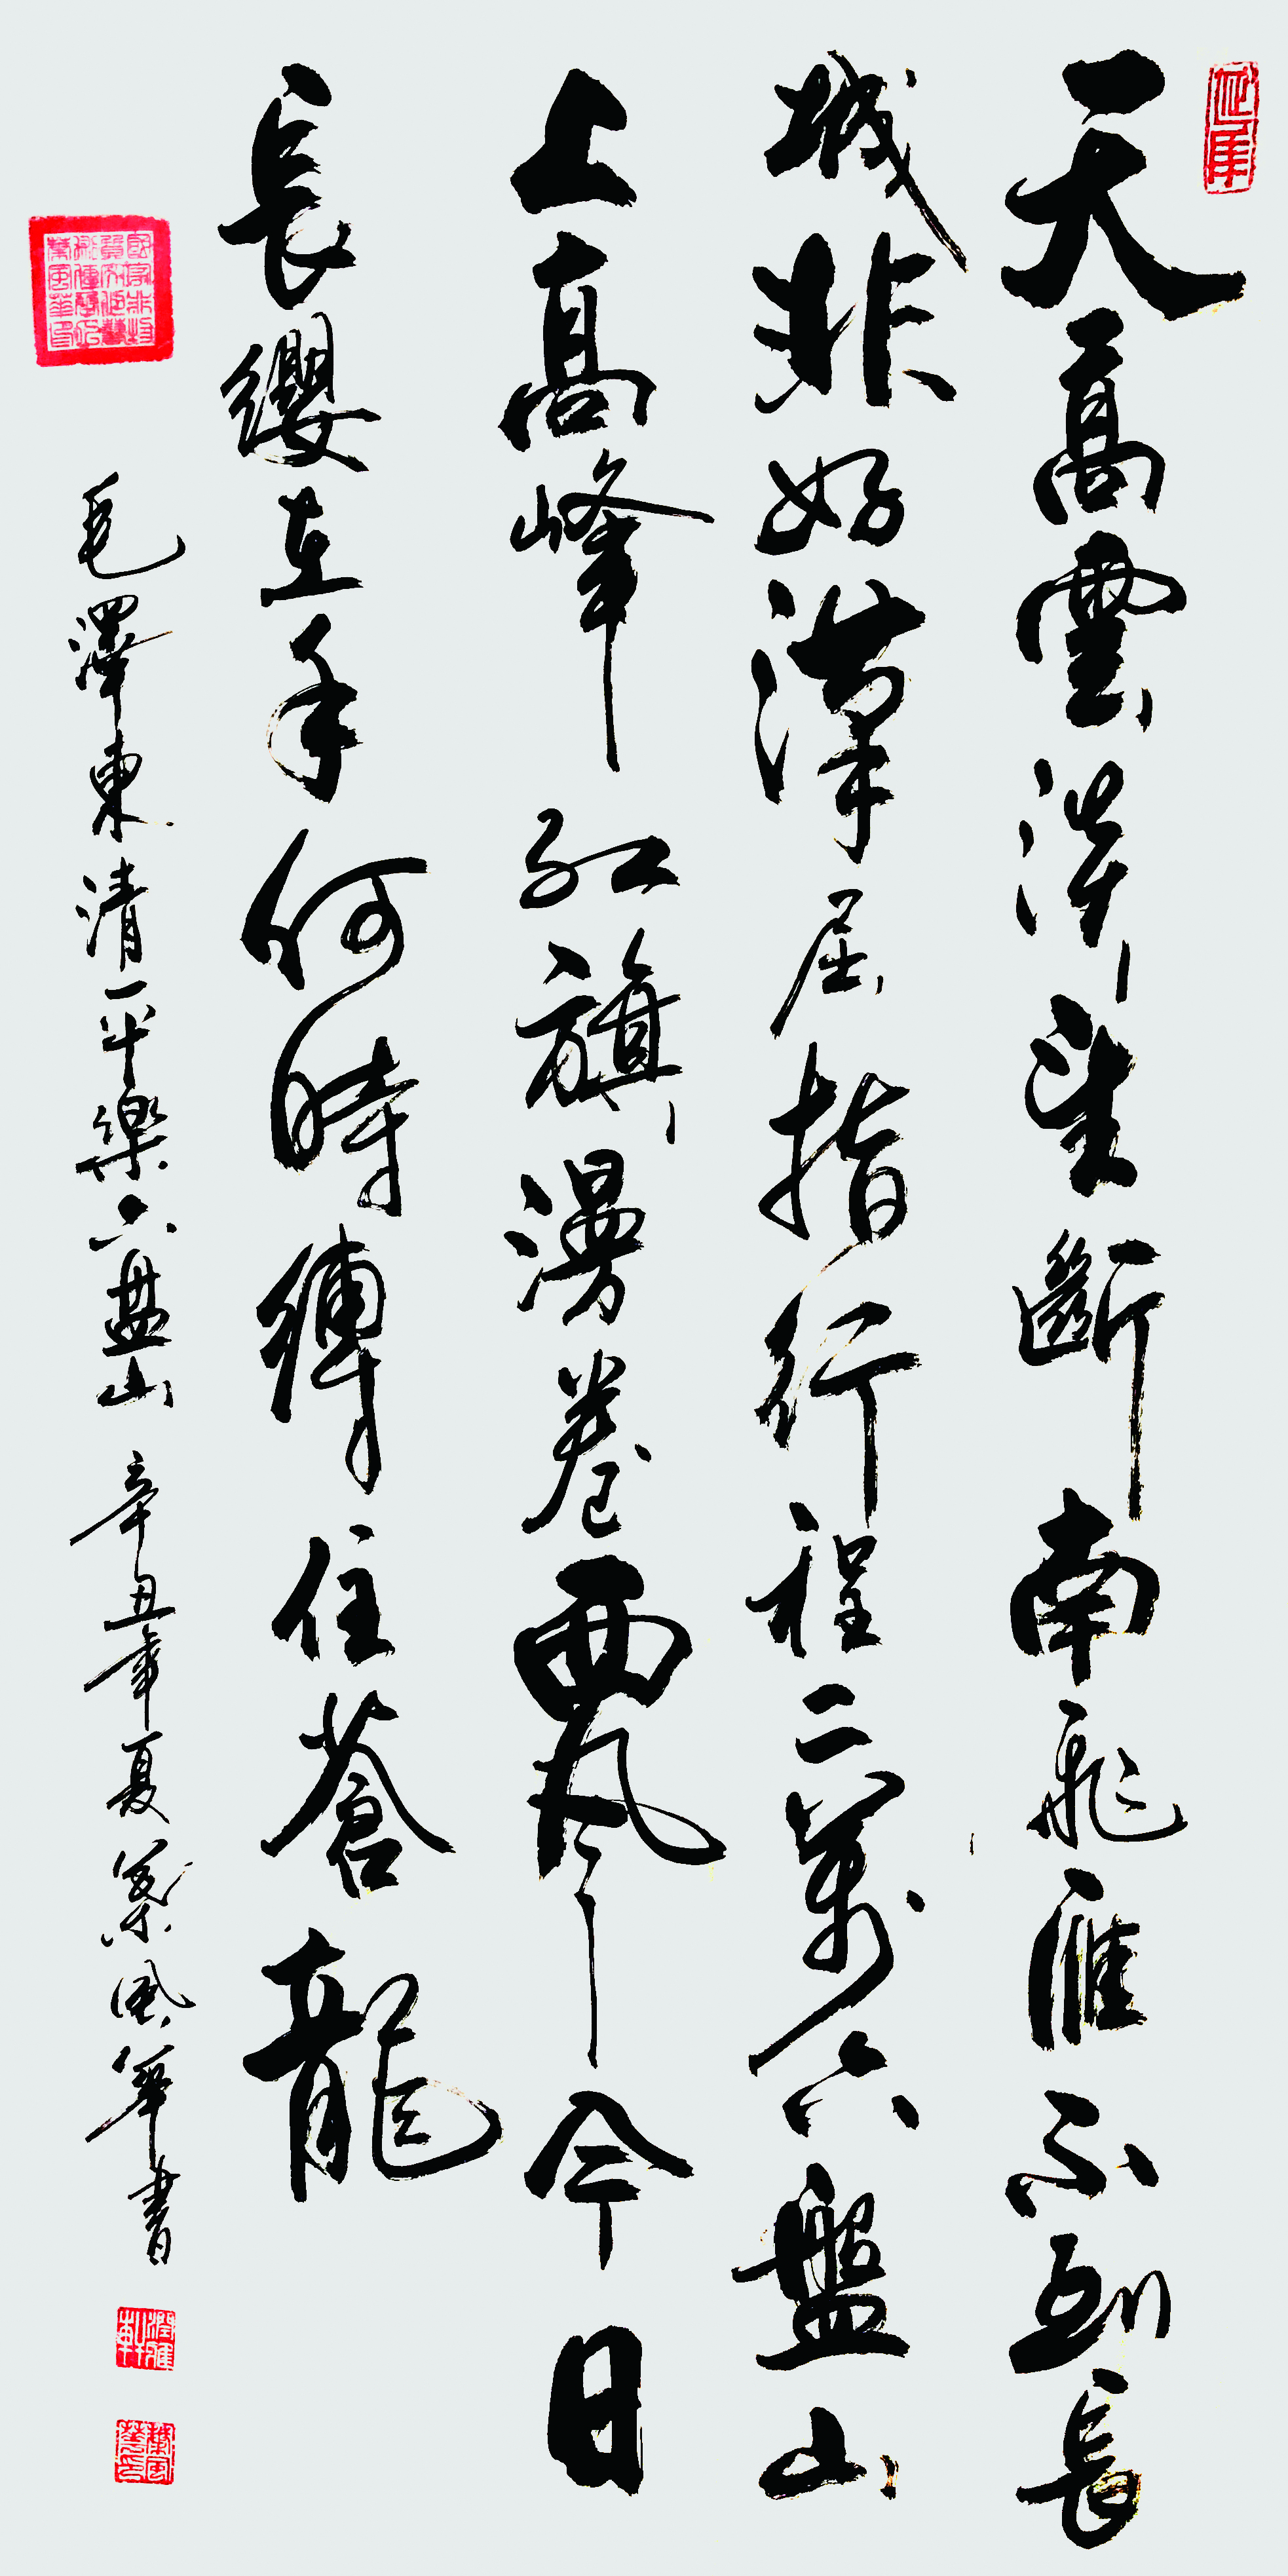 天高雲淡望斷南飛雁不到長
城非好漢屈指行程二萬六盤山
上高峰紅旗漫卷西風今日
長纓在手何時縛住蒼龍
毛澤東清平樂六盤山 辛丑年夏葉風華書
葉風華印